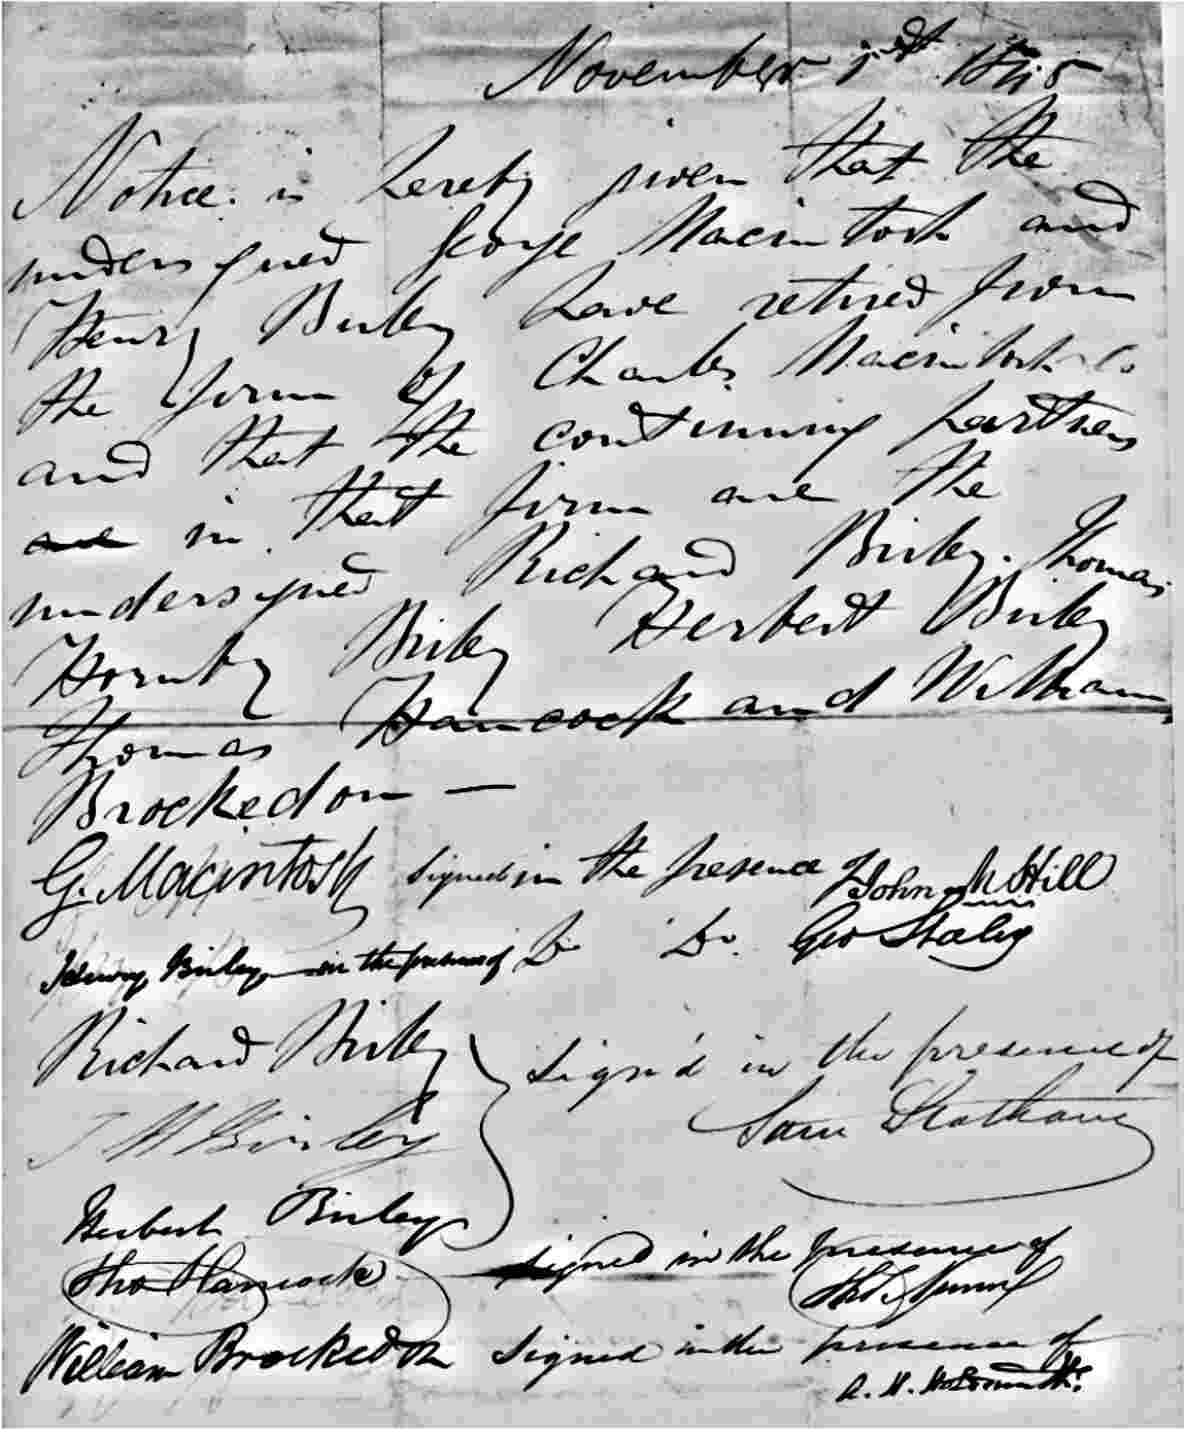 November 1st 1845
Notice is hereby given that the
undersigned George Macintosh and
Henry Birley have retired from
the firm of Charles Macintosh Co
and that the continuing partners
in that firm are the
undersigned Richard Birley. Thomas
Hornby Birley Herbert Birley
Thomas Hancock and William
Brockedon —
G. Macintosh signed in the presence of John Hill
Henry Birley in the presence of Do Do. Geo Staley
Richard Birley Sign'd in the presence of
T H Birley Sam Statham
Herbert Birley
Tho Hancock signed in the presence of
William Brockedon signed in the presence of